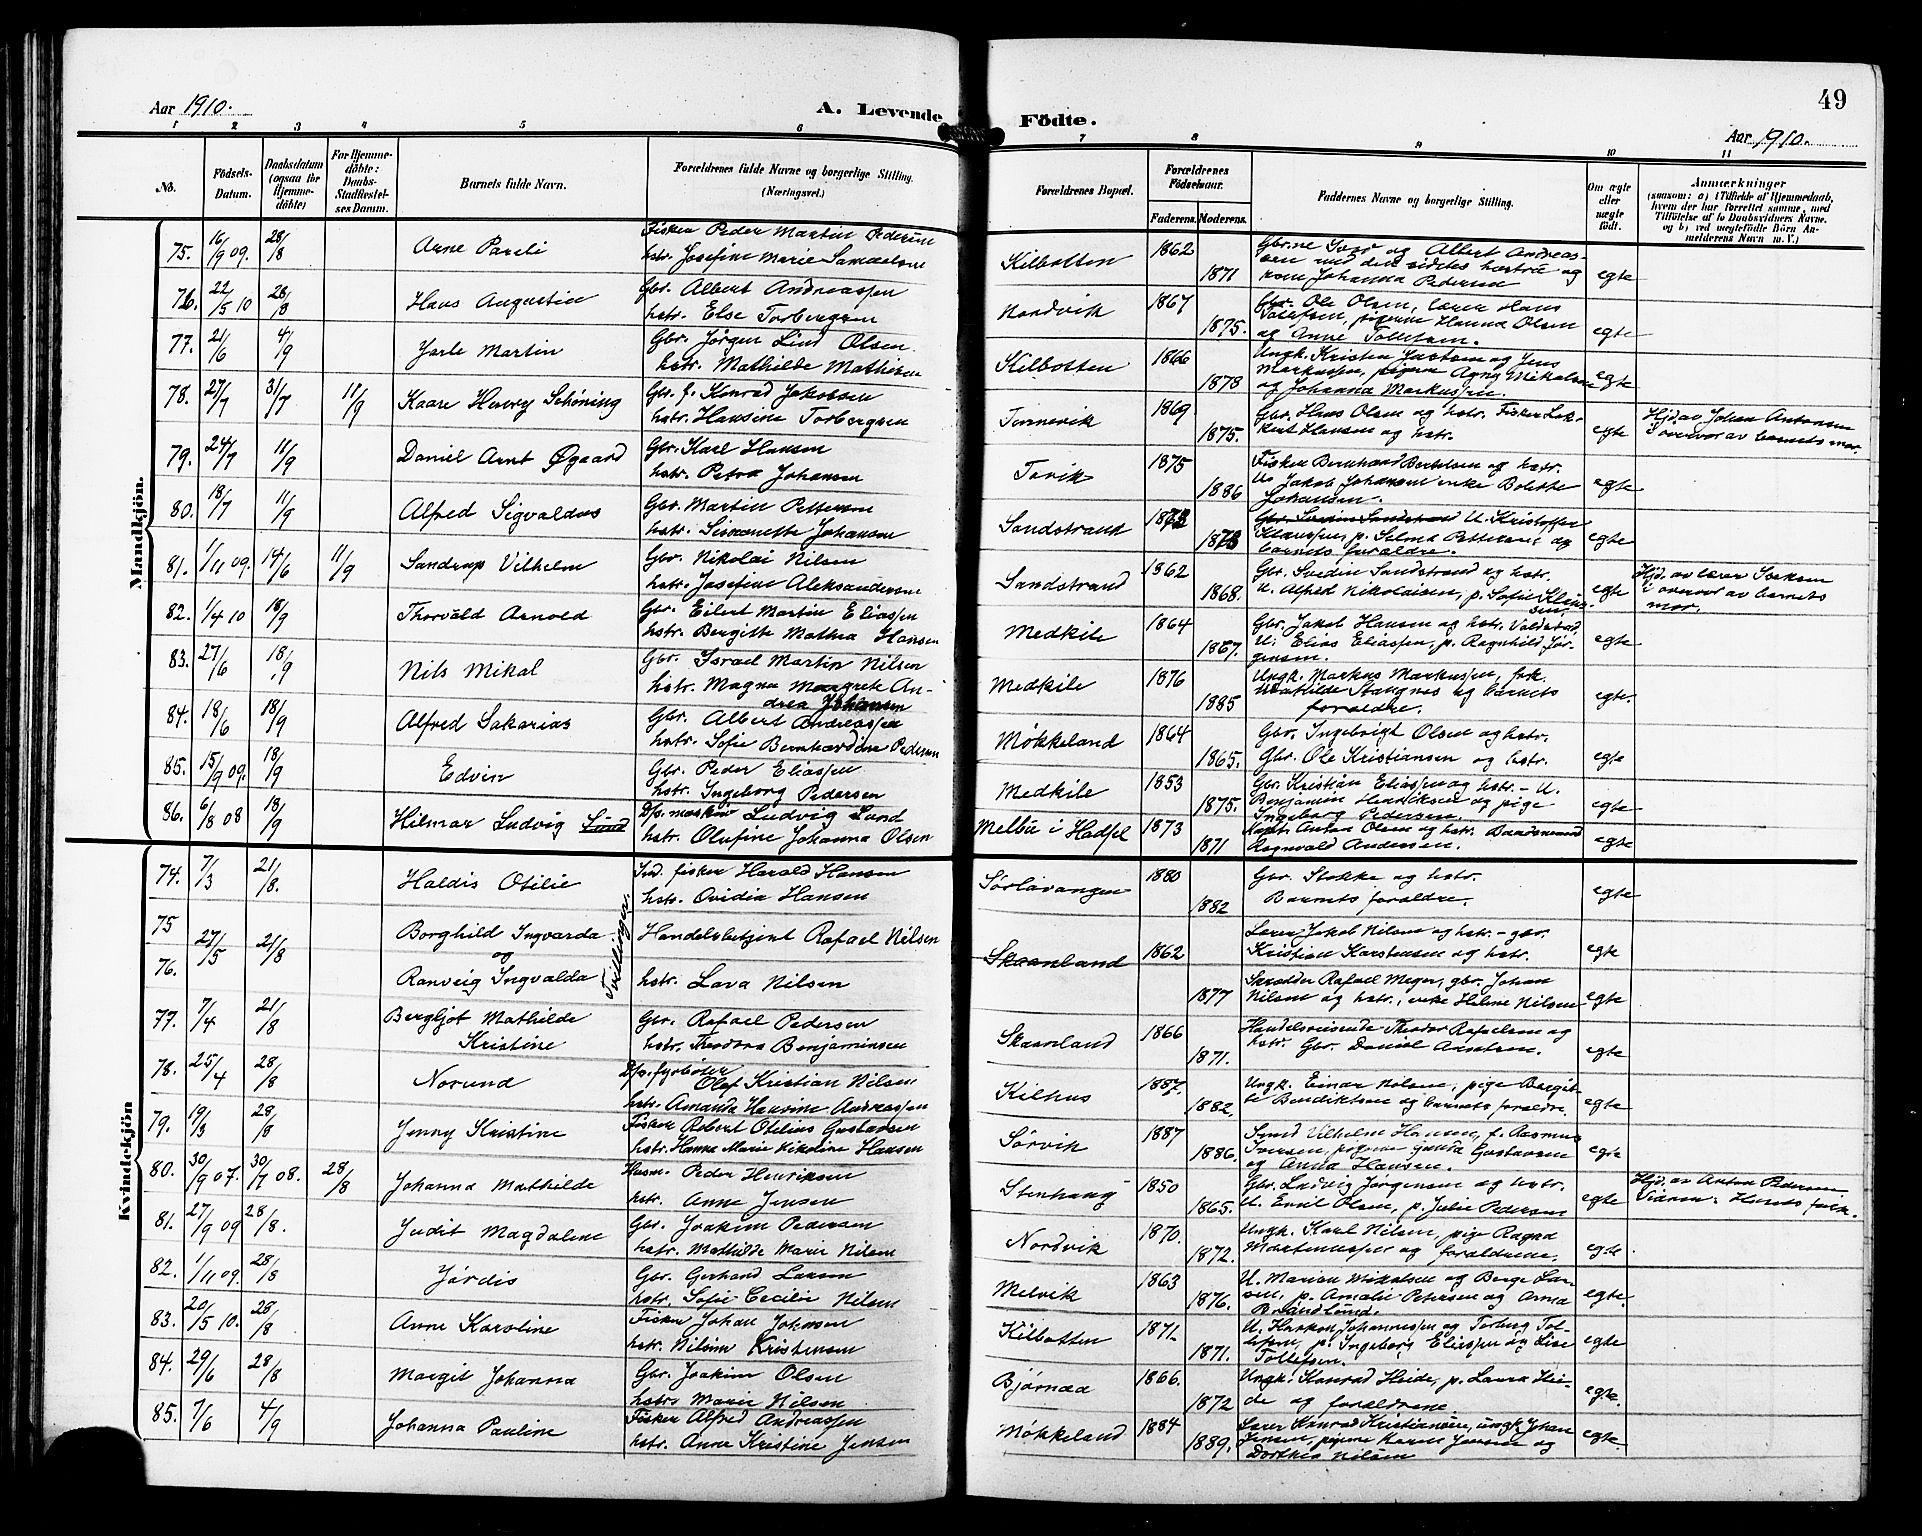 49
Aar 1910.
A. Levende Födte.
Aar 1910.
1 2 3 4 5 6 7 8 9 10 11
No. Födsels-Datum. Daabsdatum (ogsaa for Hjemme-döbte) For Hjemme-döbte: Daabs-Stadfæstel-ses Datum. Barnets fulde Navn. Forældrenes fulde Navne og borgerlige Stilling. (Næringsvei.) Forældrenes Bopæl. Forældrenes Födselsaar. Faderens. Moderens. Faddernes Navne og borgerlige Stilling. Om ægte eller uægte födt. Anmærkninger (saasom: a) i Tilfælde af Hjemmedaab, hvem der har forrettet samme, med Tilföielse af to Daabsvidners Navne. og b) ved uægtefödte Börn An-melderens Navn m. V.)
Mandkjön.
75. 16/9 09. 28/8 Arne Pareli Fisker Peder Martin Pedersen
hstr. Josefine Marie Samuelsen Kilbotten 1862 1871 egte
76. 22/5 10 28/8 Hans Augustin Gbr. Albert Andreassen
hstr. Else Torbergsen Nordvik 1867 1875. Gbr. Ole Olsen, lærer Hans
Tollefsen, pigerne Hanna Olsen
og Anne Tollefsen. egte
77. 21/6 4/9 Jarle Martin Gbr. Jørgen Lind Olsen
hstr. Mathilde Mathisen Kilbotten 1866 1878 Ungk. Kristen Justsen og Jens
Markussen, pigerne Agny Mikalsen
og Johanna Markussen. egte
78. 27/7 31/7 11/9 Kaare Henry Schöning Gbr. f. Konrad Jakobsen
hstr. Hansine Torbergsen Tennevik 1869 1875. Gbr. Hans Olsen og hstr. Fisker Lek-
kert Hansen og hstr. egte Hjd. av Johan Antonsen
i overvær av barnets mor.
79. 24/7 11/9 Daniel Arnt Øgaard Gbr. Karl Hansen
hstr. Petra Johansen Tovik 1875 1886 Fisker Bernhard Bertelsen og hstr.
U. Jakob Johansen enke Bolette
Johansen. egte
80. 18/7 11/9 Alfred Sigvaldus Gbr. Martin Pettersen
hstr. Simonette Johansen Sandstrand 1873 1878 Gbr. Sandstrand U. Kristoffer
Klaussen, p. Selma Pettersen og
barnets forældre. egte
81. 1/11 09. 14/6 11/9 Sandrup Vilhelm Gbr. Nikolai Nilsen
hstr. Josefine Aleksandersen Sandstrand 1862 1868. Gbr. Svedin Sandstrand og hstr.
U. Alfred Nikolaisen, p. Sofie Klaus-
sen. egte Hjd. av lærer Isaksen
i overvær av barnets
mor.
82. 1/4 10 18/9 Thorvald Arnold Gbr. Eilert Martin Eliassen
hstr. Bergitte Mathea Hansen Medkile 1864 1867. Gbr. Jakob Hansen og hstr.
U. Elias Eliassen, p. Ragnhild Jør-
gensen. egte
83. 27/6 18/9 Nils Mikal Gbr. Israel Martin Nilsen
hstr. Magna Margrete An-
drea Johansen Medkile 1876 1885 Ungk. Markus Markussen, frk.
Mathilde Stangnes og barnets
forældre. egte.
84. 18/6 18/9 Alfred Sakarias Gbr. Albert Andreassen
hstr. Sofie Bernhardine Pedersen Møkkeland 1864 1865. Gbr. Ingebrigt Olsen og hstr.
Gbr. Ole Kristiansen og hstr. egte
85. 15/9 09. 18/9 Edvin Gbr. Peder Eliassen
hstr. Ingeborg Pedersen Medkile 1853 1875. Gbr. Kristian Eliassen og hstr. - U.
Benjamin Henriksen og pige
Ingeborg Pedersen. egte
86. 6/8 08 18/9 Hilmar Ludvig Sund D/s. maskin Ludvig Sund
hstr. Olufine Johanna Olsen Melbu i Hadsel 1873 1871 Anton Olsen og hstr. Baadsmand
Ragnvald Andersen. egte
Kvindekjön
74. 7/3 21/8. Haldis Otilie Ind. fisker Harald Hansen
hstr. Ovidia Hansen Sørlavangen 1880 1882 Gbr. Stokke og hstr.
Barnets forældre. egte
75 27/5 21/8 Borghild Ingvarda Tvillinger. Handelsbetjent Rafael Nilsen
Skaanland 1862 Lærer Jakob Nilsen og hstr. - gbr.
Kristian Karstensen og hstr. egte
og
76. Ranveig Ingvalda hstr. Lava Nilsen 1877 Skrædder Rafael Meyer, gbr. Johan
Nilsen og hstr., enke Helene Nilsen egte
77. 7/4 21/8 Bergljot Mathilde
Kristine Gbr. Rafael Pedersen
hstr. Theodora Benjaminsen Skaanland 1866 1871. Handelsreisende Theodor Rafaelsen og
hstr. Gbr. Daniel egte
78. 25/4 28/8 Norund D/s. fyrbøter
Olaf Kristian Nilsen
hstr. Amanda Hansine Andreassen Kilhus 1887. 1882. Ungk. Einar Nilsen, pige Bergit-
te Bendiktsen og barnets forældre. egte
79. 19/3 28/8 Jenny Kristine Fisker Robert Otelius Gustavsen
hstr. Hanna Marie Nikoline Hansen Sørvik 1887 1886. Smed Vilhelm Hansen, f. Rasmus
Iversen, pigerne Gustavsen
og Anna Hansen. egte
80. 30/9 07. 30/7 08. 28/8 Johanna Mathilde Husm. Peder Henriksen
hstr. Anne Jensen Stenhaug 1850 1865. Gbr. Ludvig Jørgensen og hstr.
U. Emil Olsen, p. Julie Pedersen egte Hjd. av Anton Pedersen
81. 27/9 09 28/8. Judit Magdalene Gbr. Joakim Pedersen
hstr. Mathilde Marie Nilsen Nordvik 1870. 1872. Ungk. Karl Nilsen, pige Ragna
Martinussen og forældrene. egte.
82. 1/11 09. 28/8 Jørdis Gbr. Gerhard Larsen
hstr. Sofie Cecilie Nilsen Melvik 1863 1876. U. Marian Mikalsen og Berge Lar-
sen, p. Amalie Petersen og Anna
Brandlund. egte.
83. 20/5 10. 28/8 Anne Karoline Fisker Johan Johnsen
hstr. Nilsine Kristensen Kilbotten 1871. 1871. U. Haakon Johannessen og Torberg Tol-
lefsen, p. Ingeborg Eliassen og Lise
Tollefsen. egte
84. 29/6 28/8 Margit Johanna Gbr. Joakim Olsen
hstr. Marie Nilsen Bjørnaa 1866. 1872 Ungk. Konrad Heide, p. Laura Hei-
de og forældrene. egte.
85. 7/6 4/9 Johanna Pauline Fisker Alfred Andreassen
hstr. Anne Kristine Jensen Møkkeland 1884 1889. Lærer Konrad Kristiansen, ungk. Johan
Jensen, pigerne Karen Jensen og
Dorthea Nilsen egte.